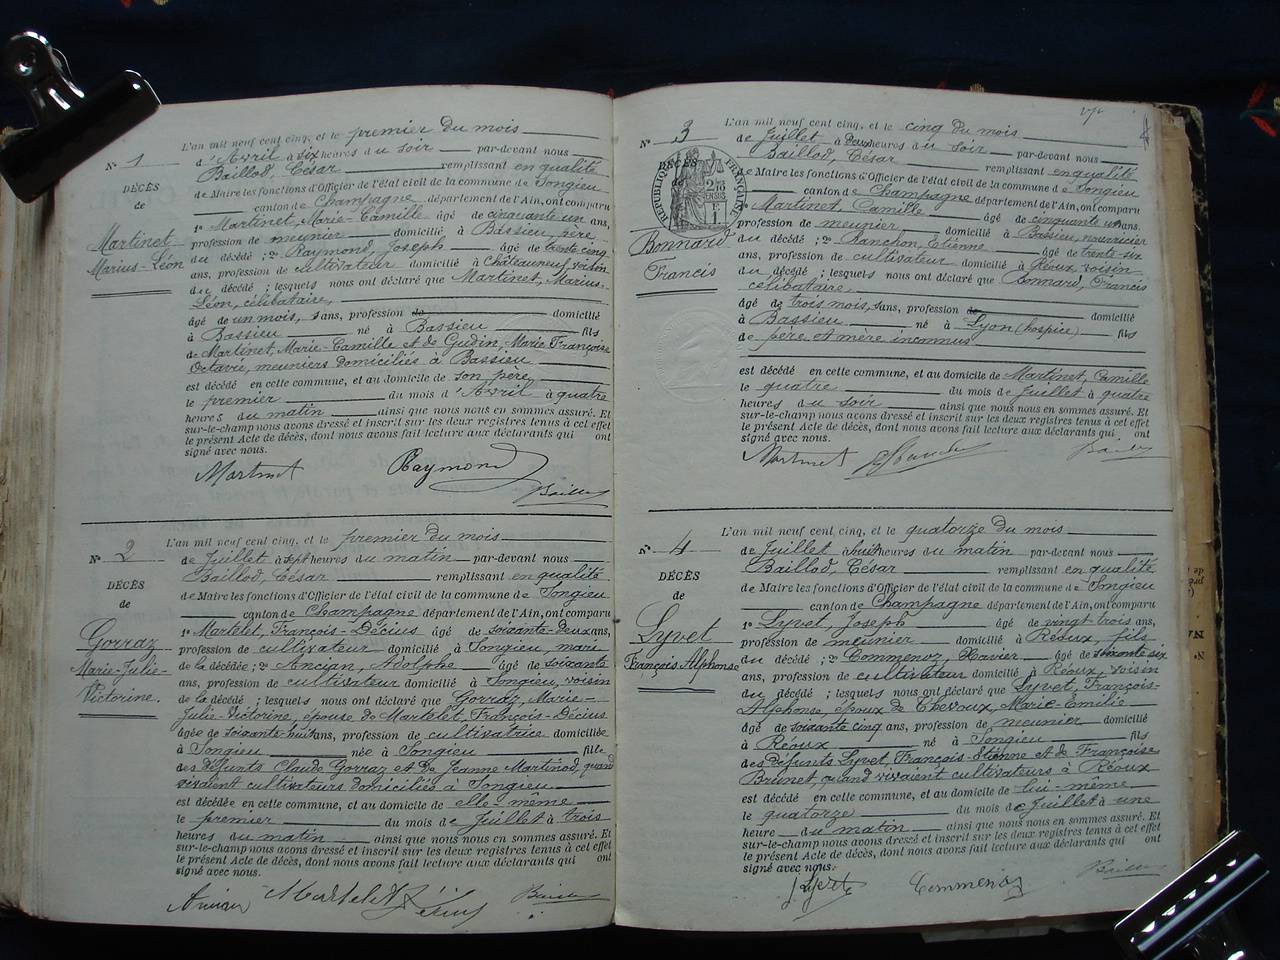 L'an mil neuf cent cinq, et le premier du mois
N° 1 d'Avril à six heures du soir par-devant nous
Baillod, César remplissant en qualité
DÉCÈS de Maire les fonctions d'Officier de l'état civil de la commune de Songieu
de canton de Champagne département de l'Ain, ont comparu
1° Martinet, Marie-Camille âgé de cinquante un ans,
Martinet profession de meunier domicilié à Bassieu, père
Marius-Léon du décédé ; 2° Raymond, Joseph âgé de trente cinq
ans, profession de cultivateur domicilié à Châteauneuf, voisin
du décédé ; lesquels nous ont déclaré que Martinet, Marius-
Léon, célibataire,
âgé de un mois, sans, profession de domicilié
à Bassieu né à Bassieu fils
de Martinet, Marie-Camille et de Gudin, Marie Françoise
Octavie, meuniers domiciliés à Bassieu
est décédé en cette commune, et au domicile de son père,
le premier du mois d'Avril à quatre
heures du matin ainsi que nous nous en sommes assuré. Et
sur-le-champ nous avons dressé et inscrit sur les deux registres tenus à cet effet
le présent Acte de décès, dont nous avons fait lecture aux déclarants qui ont
signé avec nous.
Martinet Raymond Baillod
L'an mil neuf cent cinq, et le premier du mois
N° 2 de Juillet à sept heures du matin par-devant nous
Baillod, César remplissant en qualité
DÉCÈS de Maire les fonctions d'Officier de l'état civil de la commune de Songieu
de canton de Champagne département de l'Ain, ont comparu
1° Martelet, François-Décius âgé de soixante-deux ans,
Gorraz profession de cultivateur domicilié à Songieu, mari
Marie-Julie- de la décédée ; 2° Ancian, Adolphe âgé de soixante
Victorine. ans, profession de cultivateur domicilié à Songieu, voisin
de la décédée ; lesquels nous ont déclaré que Gorraz, Marie-
Julie-Victorine, épouse de Martelet, François-Décius
âgée de soixante-huit ans, profession de cultivatrice domiciliée
à Songieu née à Songieu fille
des défunts Claude Gorraz et de Jeanne Martinod, quand
vivaient cultivateurs domiciliés à Songieu
est décédée en cette commune, et au domicile de elle-même
le premier du mois de Juillet à trois
heures du matin ainsi que nous nous en sommes assuré. Et
sur-le-champ nous avons dressé et inscrit sur les deux registres tenus à cet effet
le présent Acte de décès, dont nous avons fait lecture aux déclarants qui ont
signé avec nous.
Ancian Martelet Décius Baillod
L'an mil neuf cent cinq, et le cinq du mois
N° 3 de Juillet à deux heures du soir par-devant nous
Baillod, César remplissant en qualité
DÉCÈS de Maire les fonctions d'Officier de l'état civil de la commune de Songieu
de canton de Champagne département de l'Ain, ont comparu
RÉPUBLIQUE FRANÇAISE
1° Martinet, Camille âgé de cinquante un ans.
Bonnard profession de meunier, domicilié à Bassieu, nourricier
du décédé ; 2° Panchon, Etienne âgé de trente-six
Francis ans, profession de cultivateur domicilié à Réoux, voisin
du décédé ; lesquels nous ont déclaré que Bonnard, Francis
célibataire
âgé de trois mois, sans, profession de domicilié
à Bassieu né à Lyon (hospice) fils
de père et mère inconnus
est décédé en cette commune, et au domicile de Martinet, Camille
le quatre du mois de Juillet à quatre
heures du soir ainsi que nous nous en sommes assuré. Et
sur-le-champ nous avons dressé et inscrit sur les deux registres tenus à cet effet
le présent Acte de décès, dont nous avons fait lecture aux déclarants qui ont
signé avec nous.
Martinet
L'an mil neuf cent cinq, et le quatorze du mois
N° 4 de Juillet à huit heures du matin par-devant nous
Baillod, César remplissant en qualité
DÉCÈS de Maire les fonctions d'Officier de l'état civil de la commune de Songieu
de canton de Champagne département de l'Ain, ont comparu
1° Lyvet, Joseph âgé de vingt trois ans,
Lyvet profession de meunier domicilié à Réoux, fils
François Alphonse du décédé ; 2° Commenoz, Xavier âgé de soixante six
ans, profession de cultivateur domicilié à Réoux, voisin
du décédé ; lesquels nous ont déclaré que Lyvet, François-
Alphonse, époux de Chevoux, Marie-Emilie
âgé de soixante cinq ans, profession de meunier domicilié
à Réoux né à Songieu fils
des défunts Lyvet, François-Etienne et de Françoise
Brunet, quand vivaient cultivateurs à Réoux
est décédé en cette commune, et au domicile de lui-même
le quatorze du mois de Juillet à une
heure du matin ainsi que nous nous en sommes assuré. Et
sur-le-champ nous avons dressé et inscrit sur les deux registres tenus à cet effet
le présent Acte de décès, dont nous avons fait lecture aux déclarants qui ont
signé avec nous.
J Lyvet Commenoz Baillod